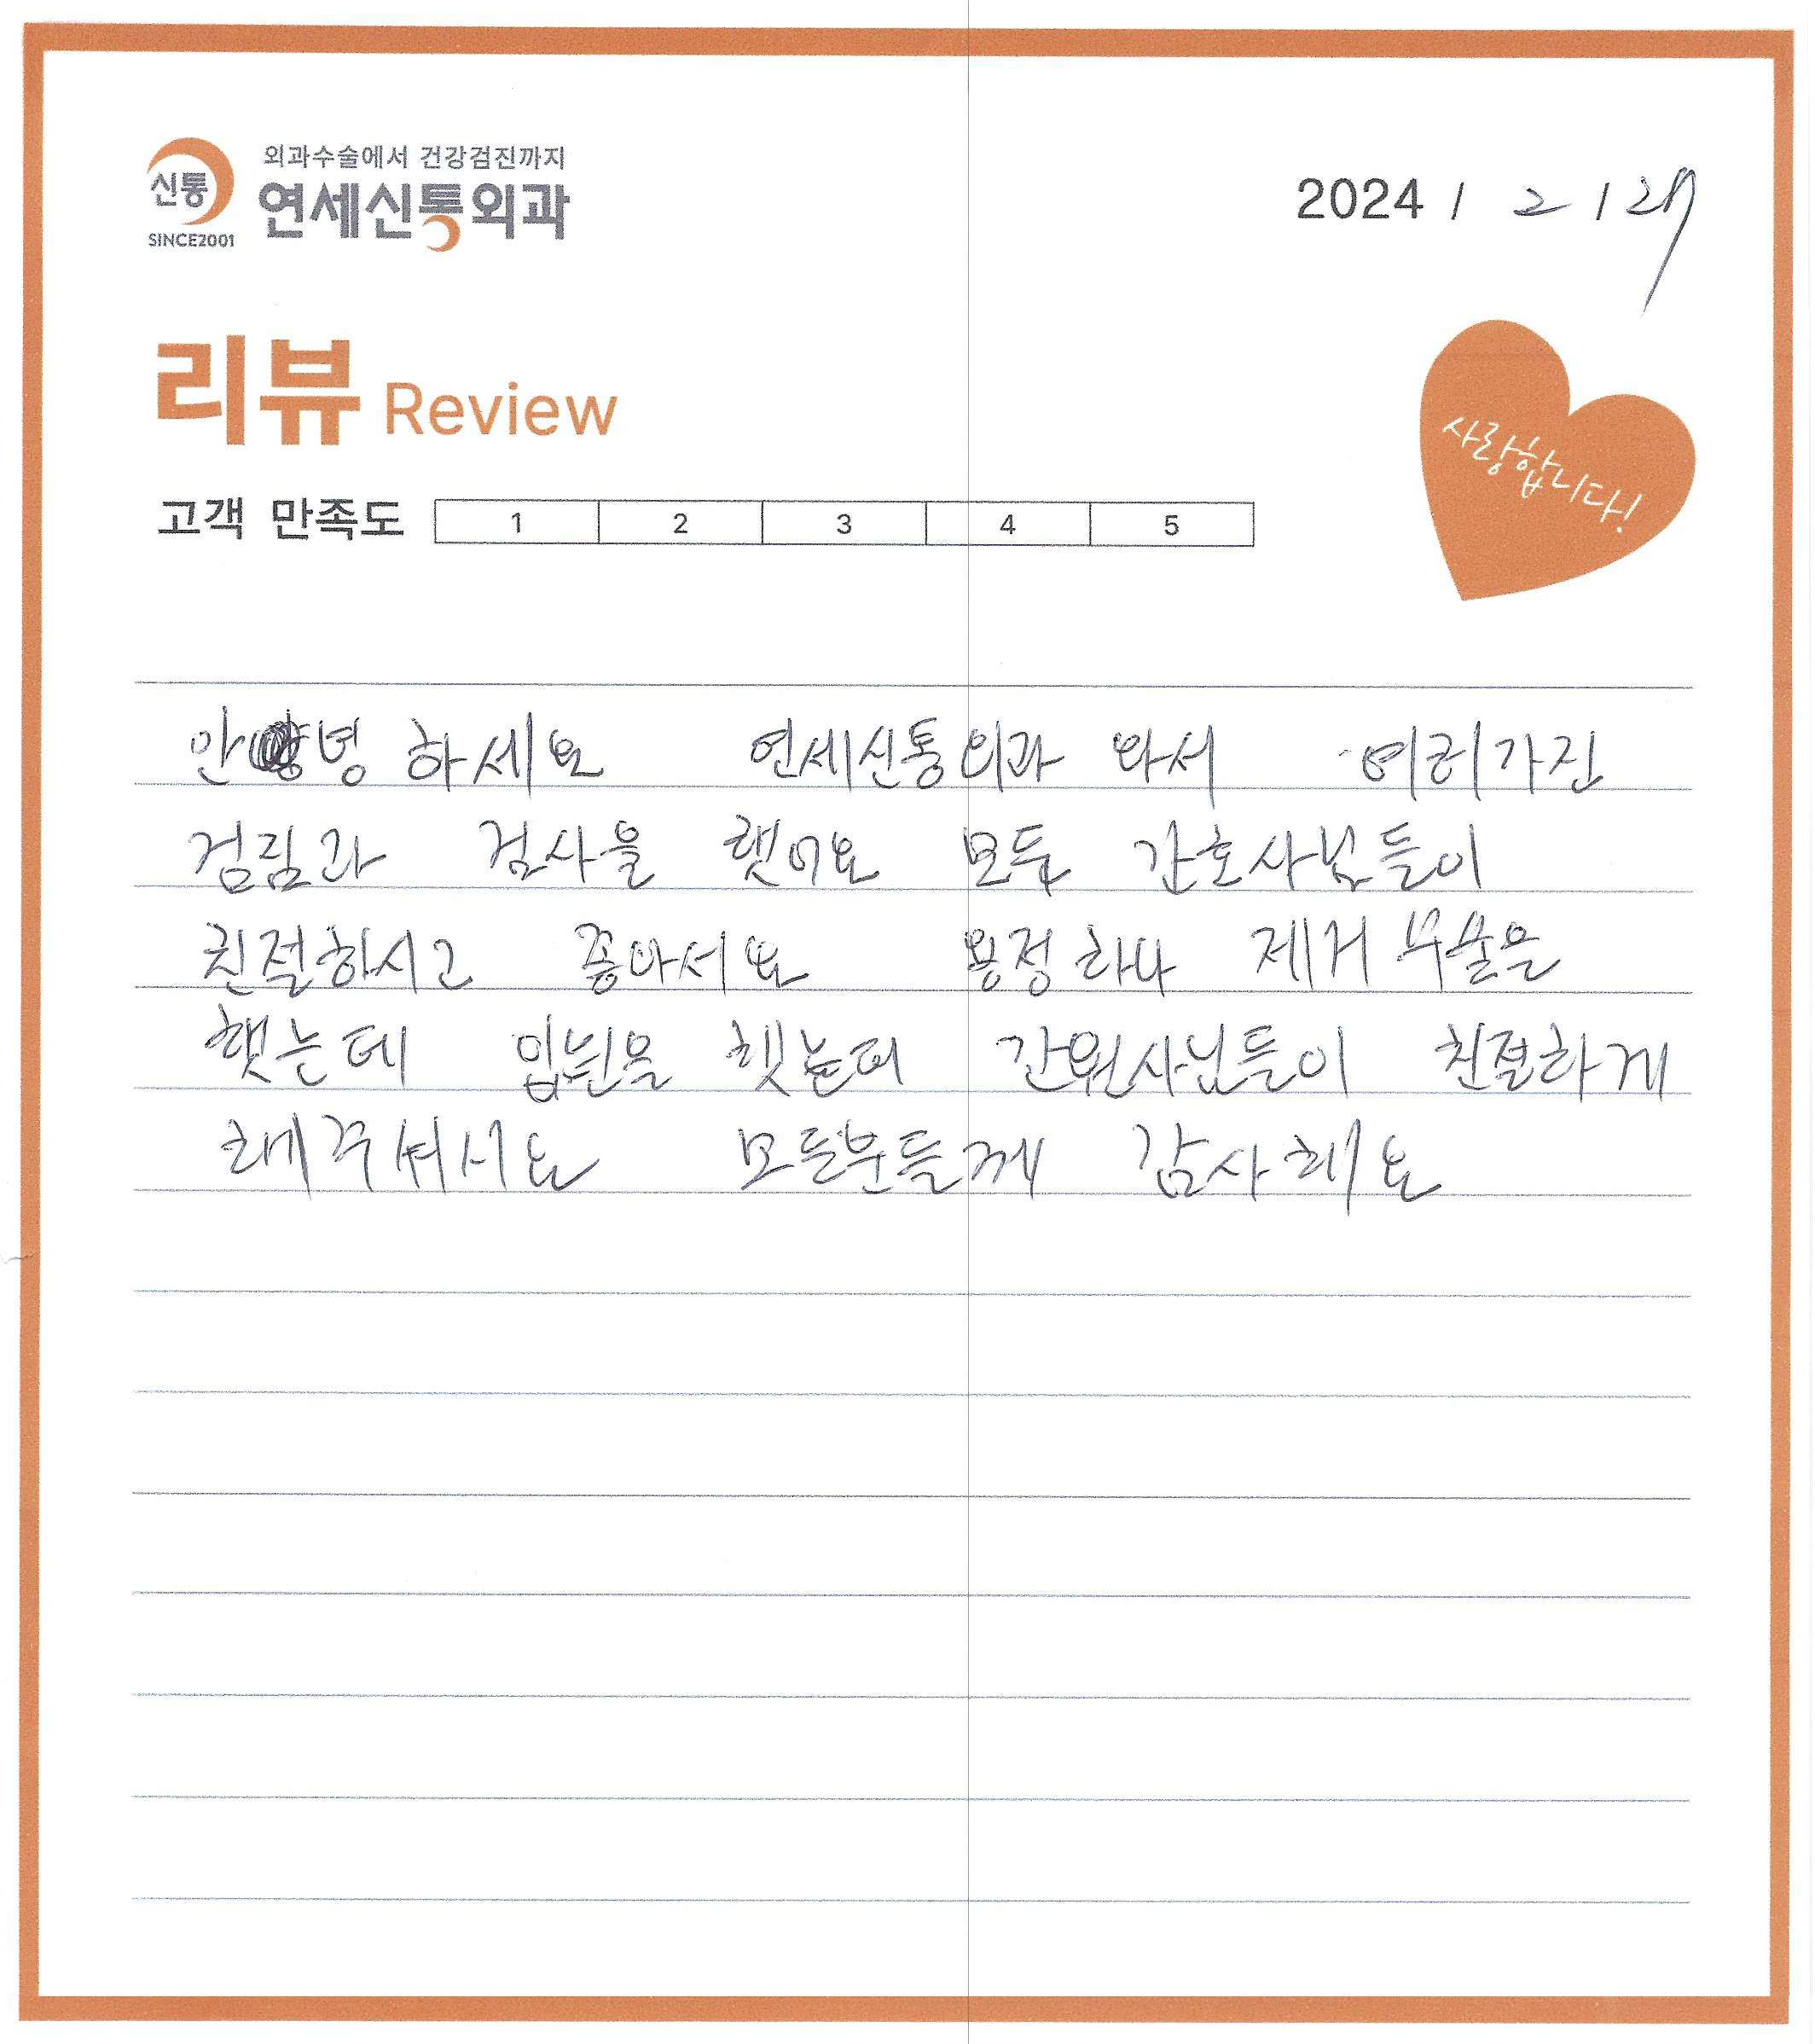 외과수술에서 건강검진까지
신통
연세신통외과
SINCE2001
2024 / 2 /
리뷰 Review
사랑합니다!
고객 만족도 1 2 3 4 5
안녕 하세요 연세신통외과 와서 여러가진
검짐과 검사을 햇어요 모두 간호사님들이
친절하시고 좋아서요 용정 하나 제거 수술은
햇는데 입뉜을 햇는데 간원사님들이 친절하게
해주셔서요 모든분들께 감사해요